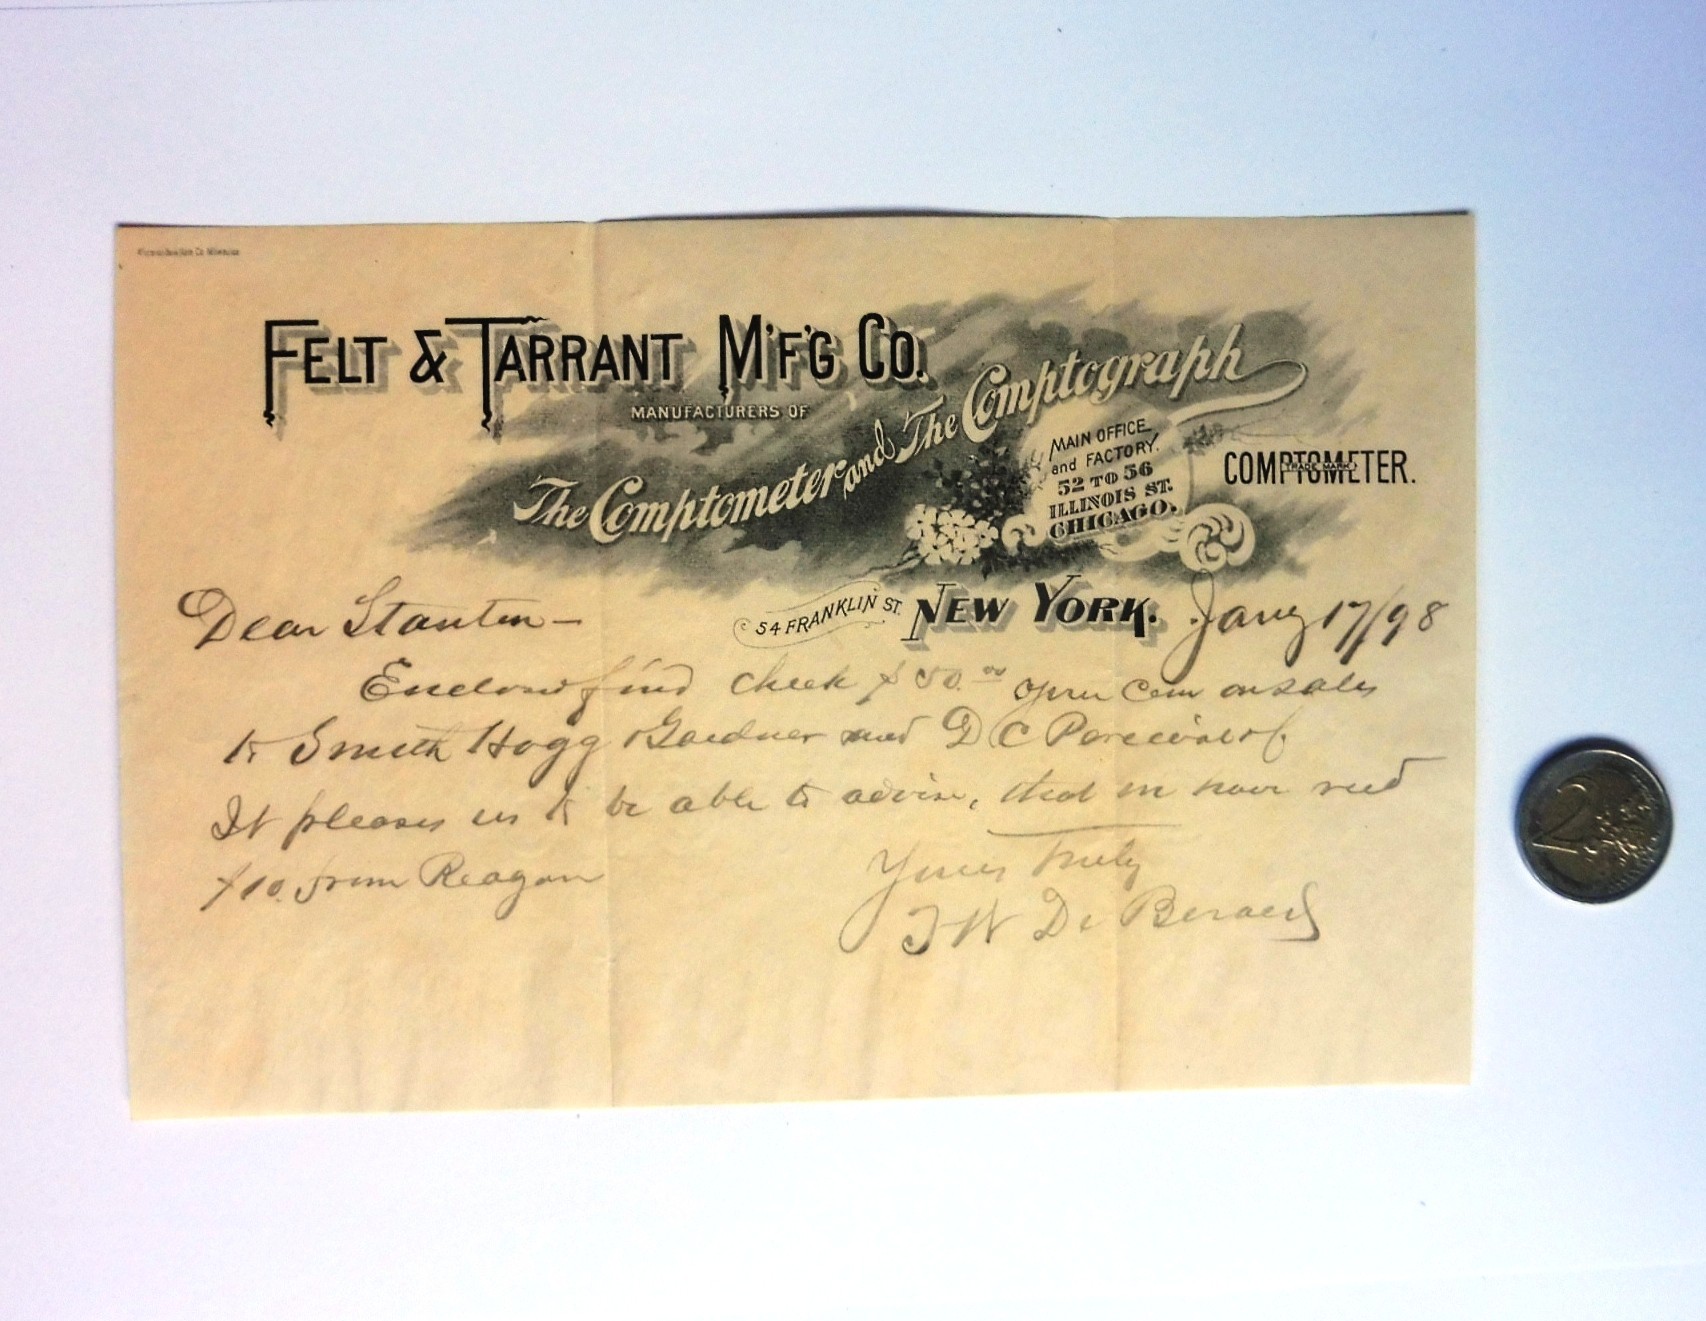 FELT & TARRANT M'F'G CO.
MANUFACTURERS OF
The Comptometer and The Comptograph
MAIN OFFICE
and FACTORY.
52 TO 56
ILLINOIS ST.
CHICAGO.
COMPTOMETER.
TRADE MARK
54 FRANKLIN ST. NEW YORK. Jany 17/98
Dear Stanton -
Enclosed find check $50.00 your Com on sales
to Smith Hogg Gardner and D C Percival
It pleases us to be able to advise, that we have recd
$10. from Reagan
Yours Truly